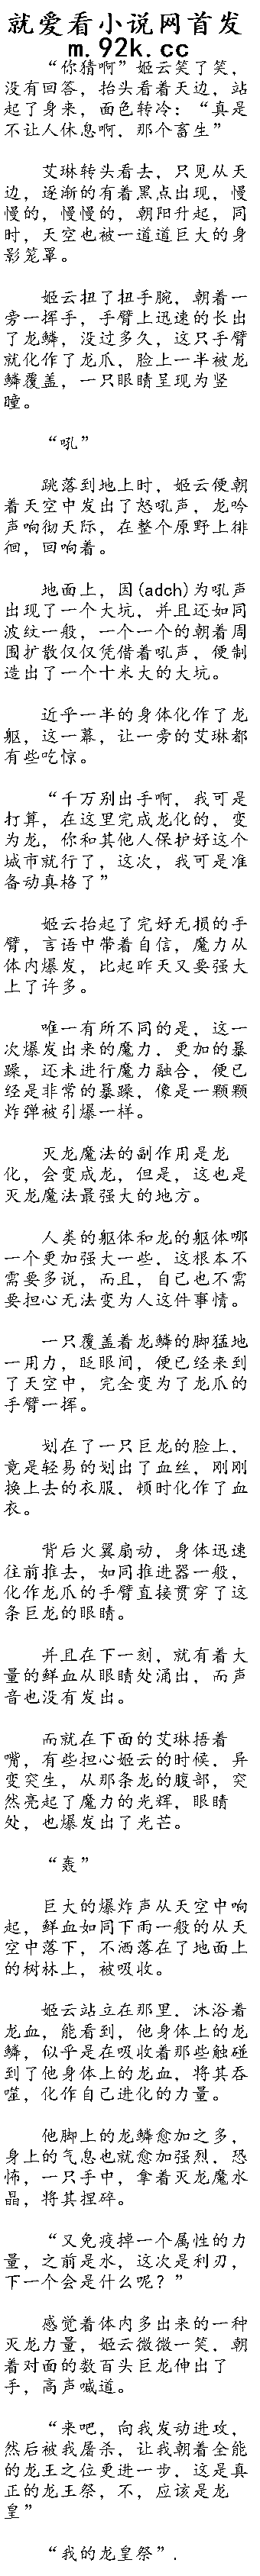 就爱看小说网首发
m.92k.cc
“你猜啊”姬云笑了笑，
没有回答，抬头看着天边，站
起了身来，面色转冷：“真是
不让人休息啊，那个畜生”
艾琳转头看去，只见从天
边，逐渐的有着黑点出现，慢
慢的，慢慢的，朝阳升起，同
时，天空也被一道道巨大的身
影笼罩。
姬云扭了扭手腕，朝着一
旁一挥手，手臂上迅速的长出
了龙鳞，没过多久，这只手臂
就化作了龙爪，脸上一半被龙
鳞覆盖，一只眼睛呈现为竖
瞳。
“吼”
跳落到地上时，姬云便朝
着天空中发出了怒吼声，龙吟
声响彻天际，在整个原野上徘
徊，回响着。
地面上，因(adch)为吼声
出现了一个大坑，并且还如同
波纹一般，一个一个的朝着周
围扩散仅仅凭借着吼声，便制
造出了一个十米大的大坑。
近乎一半的身体化作了龙
躯，这一幕，让一旁的艾琳都
有些吃惊。
“千万别出手啊，我可是
打算，在这里完成龙化的，变
为龙，你和其他人保护好这个
城市就行了，这次，我可是准
备动真格了”
姬云抬起了完好无损的手
臂，言语中带着自信，魔力从
体内爆发，比起昨天又要强大
上了许多。
唯一有所不同的是，这一
次爆发出来的魔力，更加的暴
躁，还未进行魔力融合，便已
经是非常的暴躁，像是一颗颗
炸弹被引爆一样。
灭龙魔法的副作用是龙
化，会变成龙，但是，这也是
灭龙魔法最强大的地方。
人类的躯体和龙的躯体哪
一个更加强大一些，这根本不
需要多说，而且，自己也不需
要担心无法变为人这件事情。
一只覆盖着龙鳞的脚猛地
一用力，眨眼间，便已经来到
了天空中，完全变为了龙爪的
手臂一挥。
划在了一只巨龙的脸上，
竟是轻易的划出了血丝，刚刚
换上去的衣服，顿时化作了血
衣。
背后火翼扇动，身体迅速
往前推去，如同推进器一般，
化作龙爪的手臂直接贯穿了这
条巨龙的眼睛。
并且在下一刻，就有着大
量的鲜血从眼睛处涌出，而声
音也没有发出。
而就在下面的艾琳捂着
嘴，有些担心姬云的时候，异
变突生，从那条龙的腹部，突
然亮起了魔力的光辉，眼睛
处，也爆发出了光芒。
“轰”
巨大的爆炸声从天空中响
起，鲜血如同下雨一般的从天
空中落下，不洒落在了地面上
的树林上，被吸收。
姬云站立在那里，沐浴着
龙血，能看到，他身体上的龙
鳞，似乎是在吸收着那些触碰
到了他身体上的龙血，将其吞
噬，化作自己进化的力量。
他脚上的龙鳞愈加之多，
身上的气息也就愈加强烈，恐
怖，一只手中，拿着灭龙魔水
晶，将其捏碎。
“又免疫掉一个属性的力
量，之前是水，这次是利刃，
下一个会是什么呢？”
感觉着体内多出来的一种
灭龙力量，姬云微微一笑，朝
着对面的数百头巨龙伸出了
手，高声喊道。
“来吧，向我发动进攻，
然后被我屠杀，让我朝着全能
的龙王之位更进一步，这是真
正的龙王祭，不，应该是龙
皇”
“我的龙皇祭”．